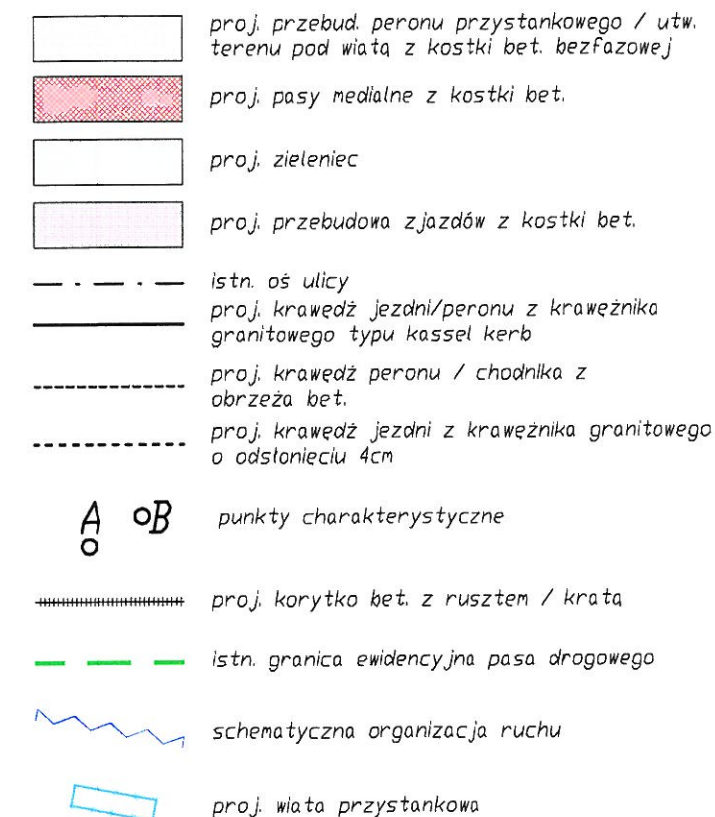 proj. przebud. peronu przystankowego / utw.
terenu pod wiatą z kostki bet. bezfazowej
proj. pasy medialne z kostki bet.
proj. zieleniec
proj. przebudowa zjazdów z kostki bet.
istn. oś ulicy
proj. krawędź jezdni/peronu z krawężnika
granitowego typu kassel kerb
proj. krawędź peronu / chodnika z
obrzeża bet.
proj. krawędź jezdni z krawężnika granitowego
o odsłonięciu 4cm
A B punkty charakterystyczne
proj. korytko bet. z rusztem / kratą
istn. granica ewidencyjna pasa drogowego
schematyczna organizacja ruchu
proj. wiata przystankowa